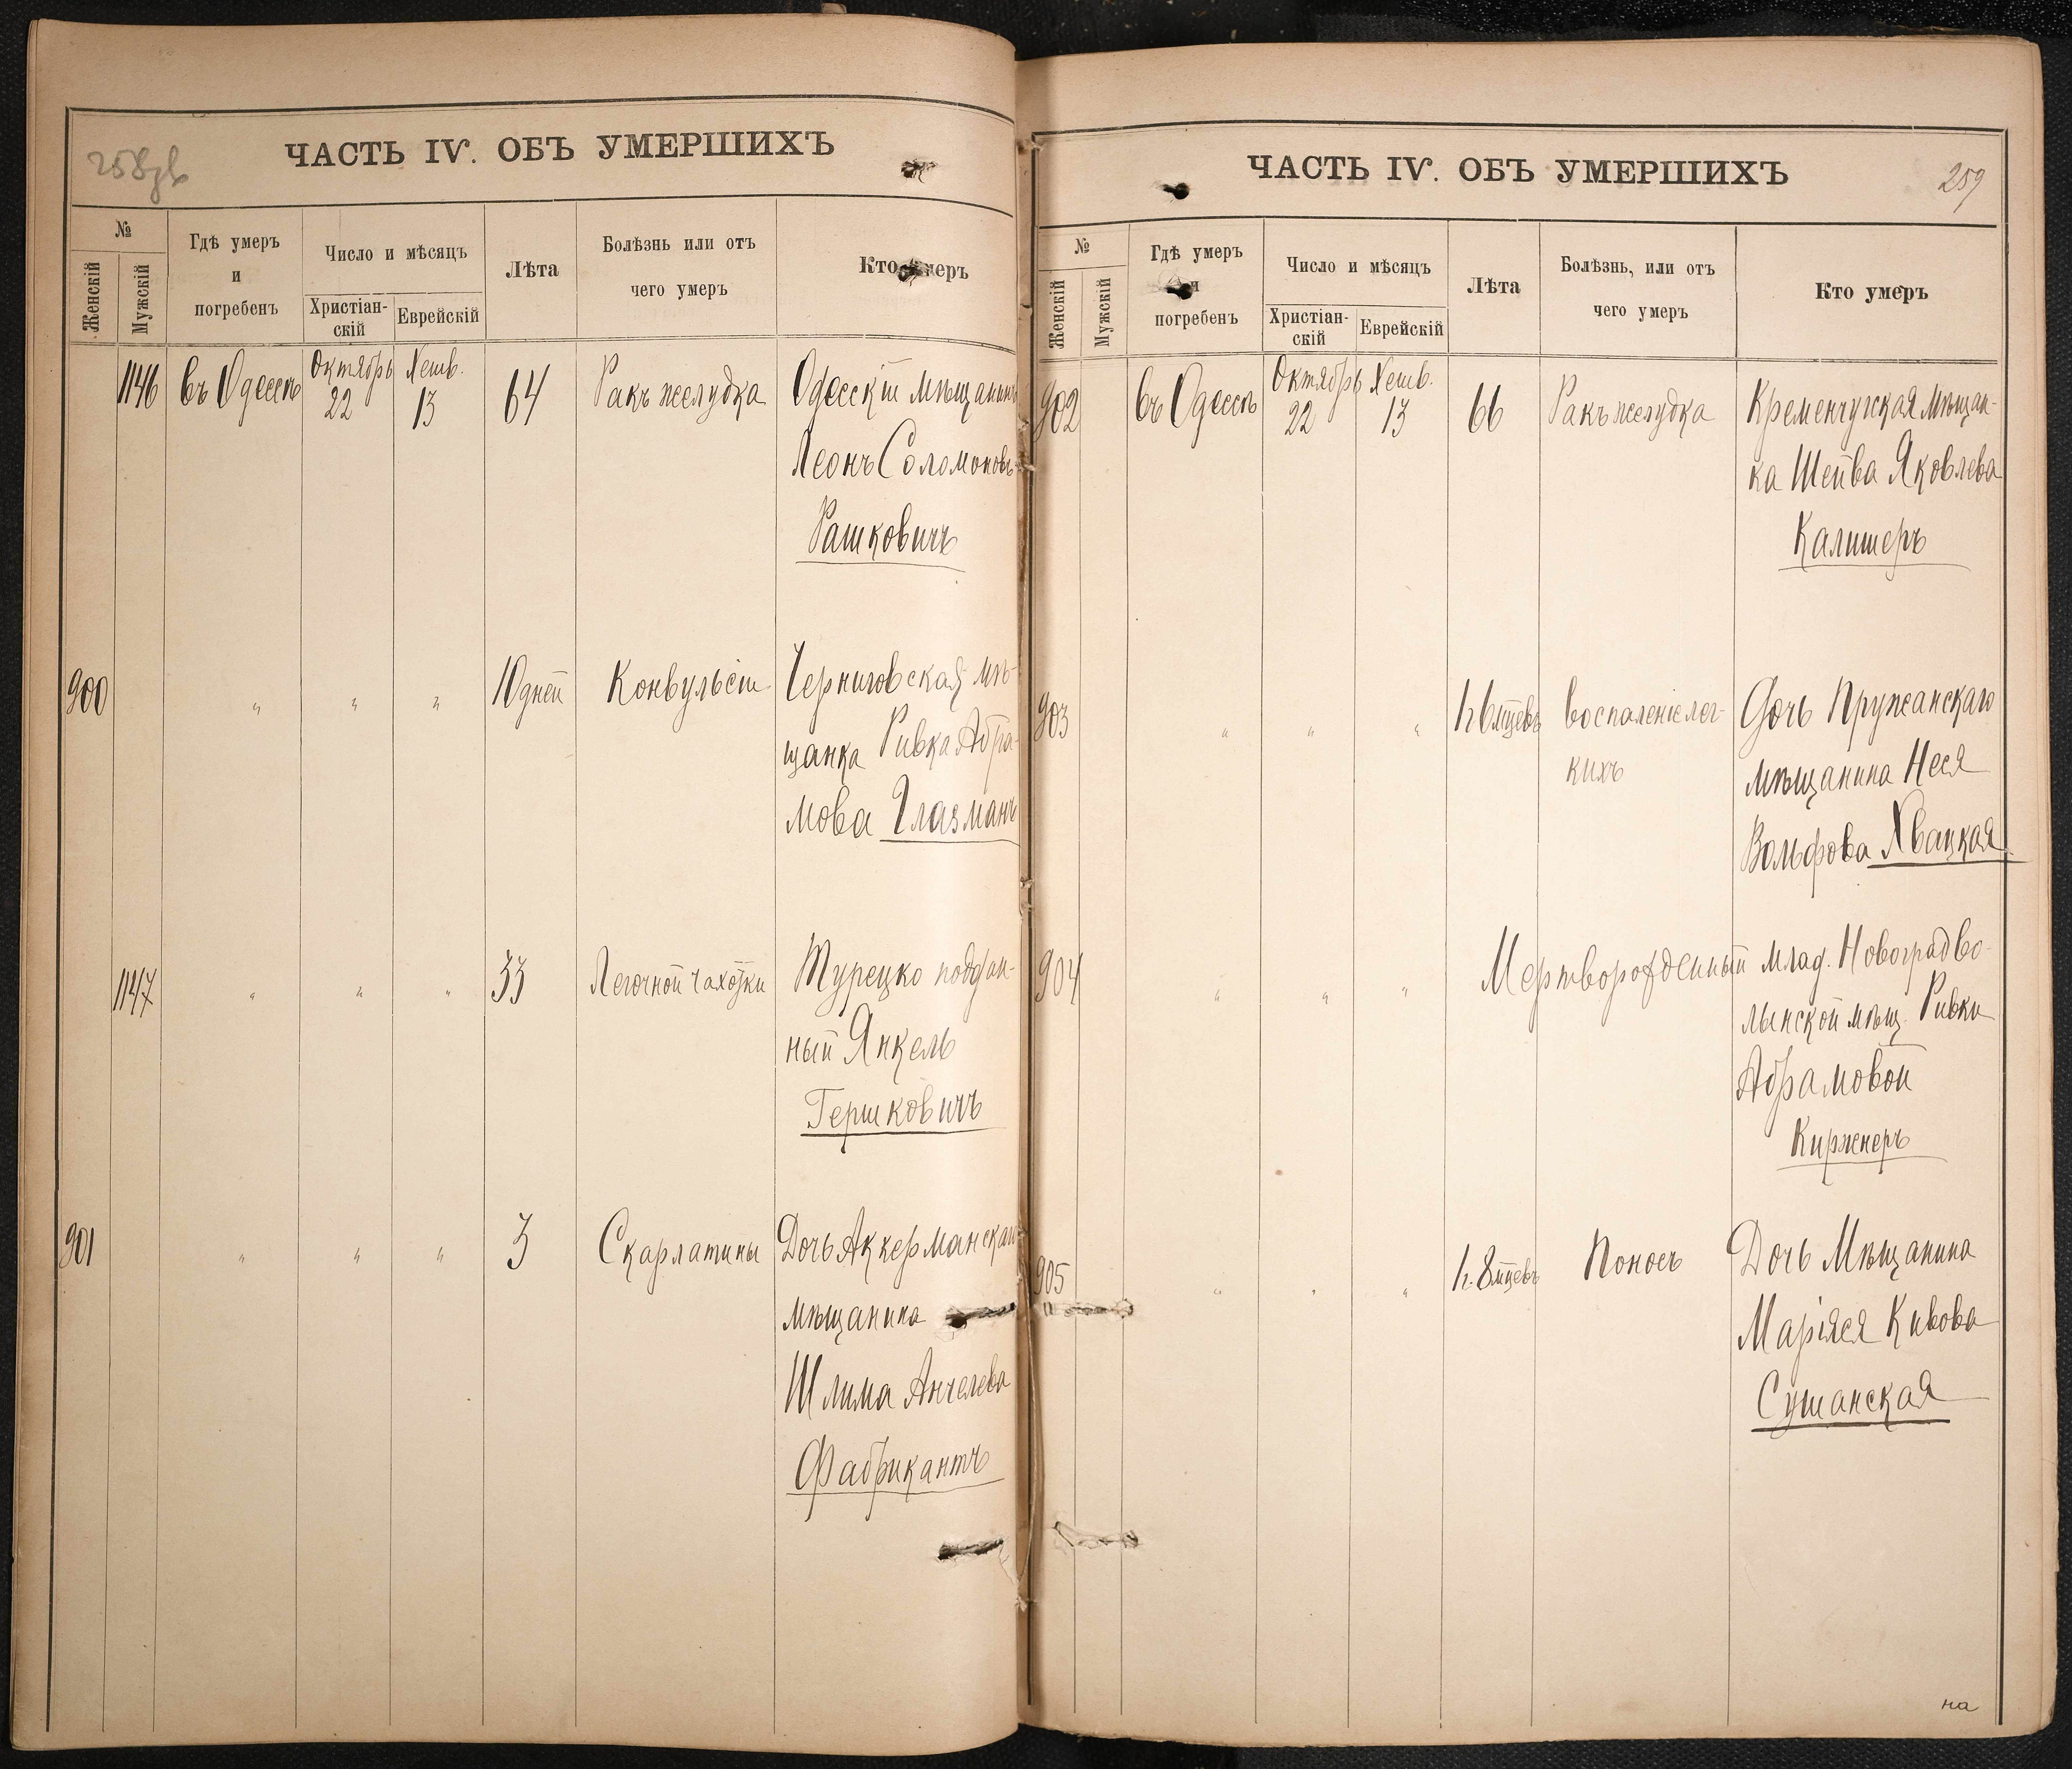 258зв
ЧАСТЬ IV. ОБЪ УМЕРШИХЪ
№
Женскій
Мужскій
Гдѣ умеръ
и
погребенъ
Число и мѣсяцъ
Христіан-
скій
Еврейскій
Лѣта
Болѣзнь или отъ
чего умеръ
Кто умеръ
1146 въ Одессѣ Октябрь 22 Хешв. 13 64 Ракъ желудка Одесскій мѣщанинъ
Леонъ Соломоновъ
Рашковичъ
900 " " " 10 дней Конвульсіи Черниговская мѣ-
щанка Ривка Абра-
мова Глазманъ
1147 " " " 33 Легочной чахотки Турецко поддан-
ный Янкель
Гершковичъ
901 " " " 3 Скарлатины Дочь Аккерманскаго
мѣщанина
Шлима Анчелева
Фабрикантъ
ЧАСТЬ IV. ОБЪ УМЕРШИХЪ
259
№
Женскій
Мужскій
Гдѣ умеръ
и
погребенъ
Число и мѣсяцъ
Христіан-
скій
Еврейскій
Лѣта
Болѣзнь, или отъ
чего умеръ
Кто умеръ
902 въ Одессѣ Октябрь 22 Хешв. 13 66 Ракъ желудка Кременчугская мѣщан-
ка Шейва Яковлева
Калишеръ
903 " " " 1 г 6 мцевъ воспаленіе лег-
кихъ
Дочь Пружанскаго
мѣщанина Неся
Вольфова Хвацкая
904 " " " Мертворожденный млад. Новоградво-
лынской мѣщ. Ривки
Абрамовой
Киржнеръ
905 " " " 1 г. 8 мцевъ Поносъ Дочь Мѣщанина
Маріяся Кивова
Сушанская
на